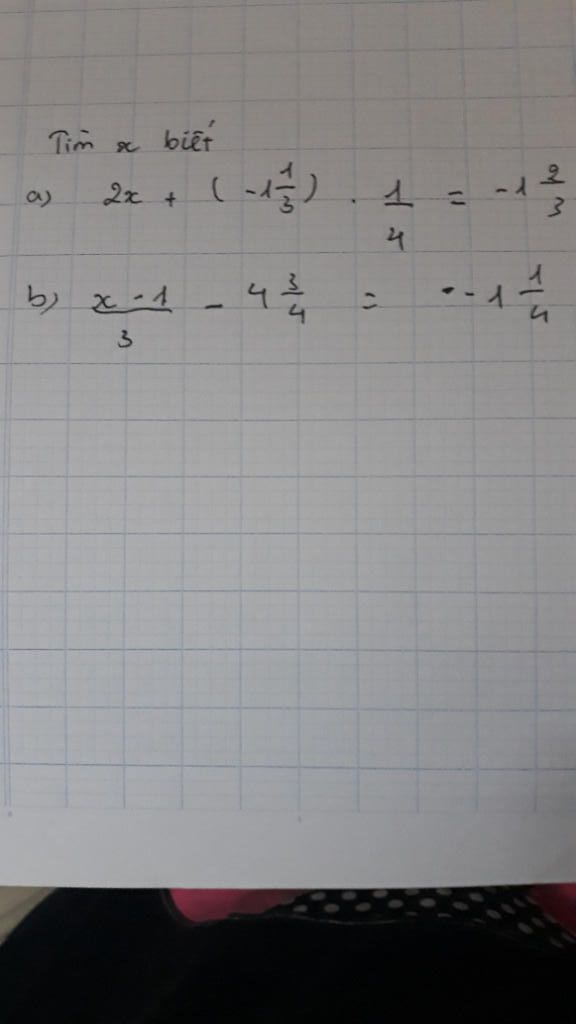 Tìm x biết
a) 2x + (-1 1/3) . 1/4 = -1 2/3
b) (x - 1)/3 - 4 3/4 = - 1 1/4